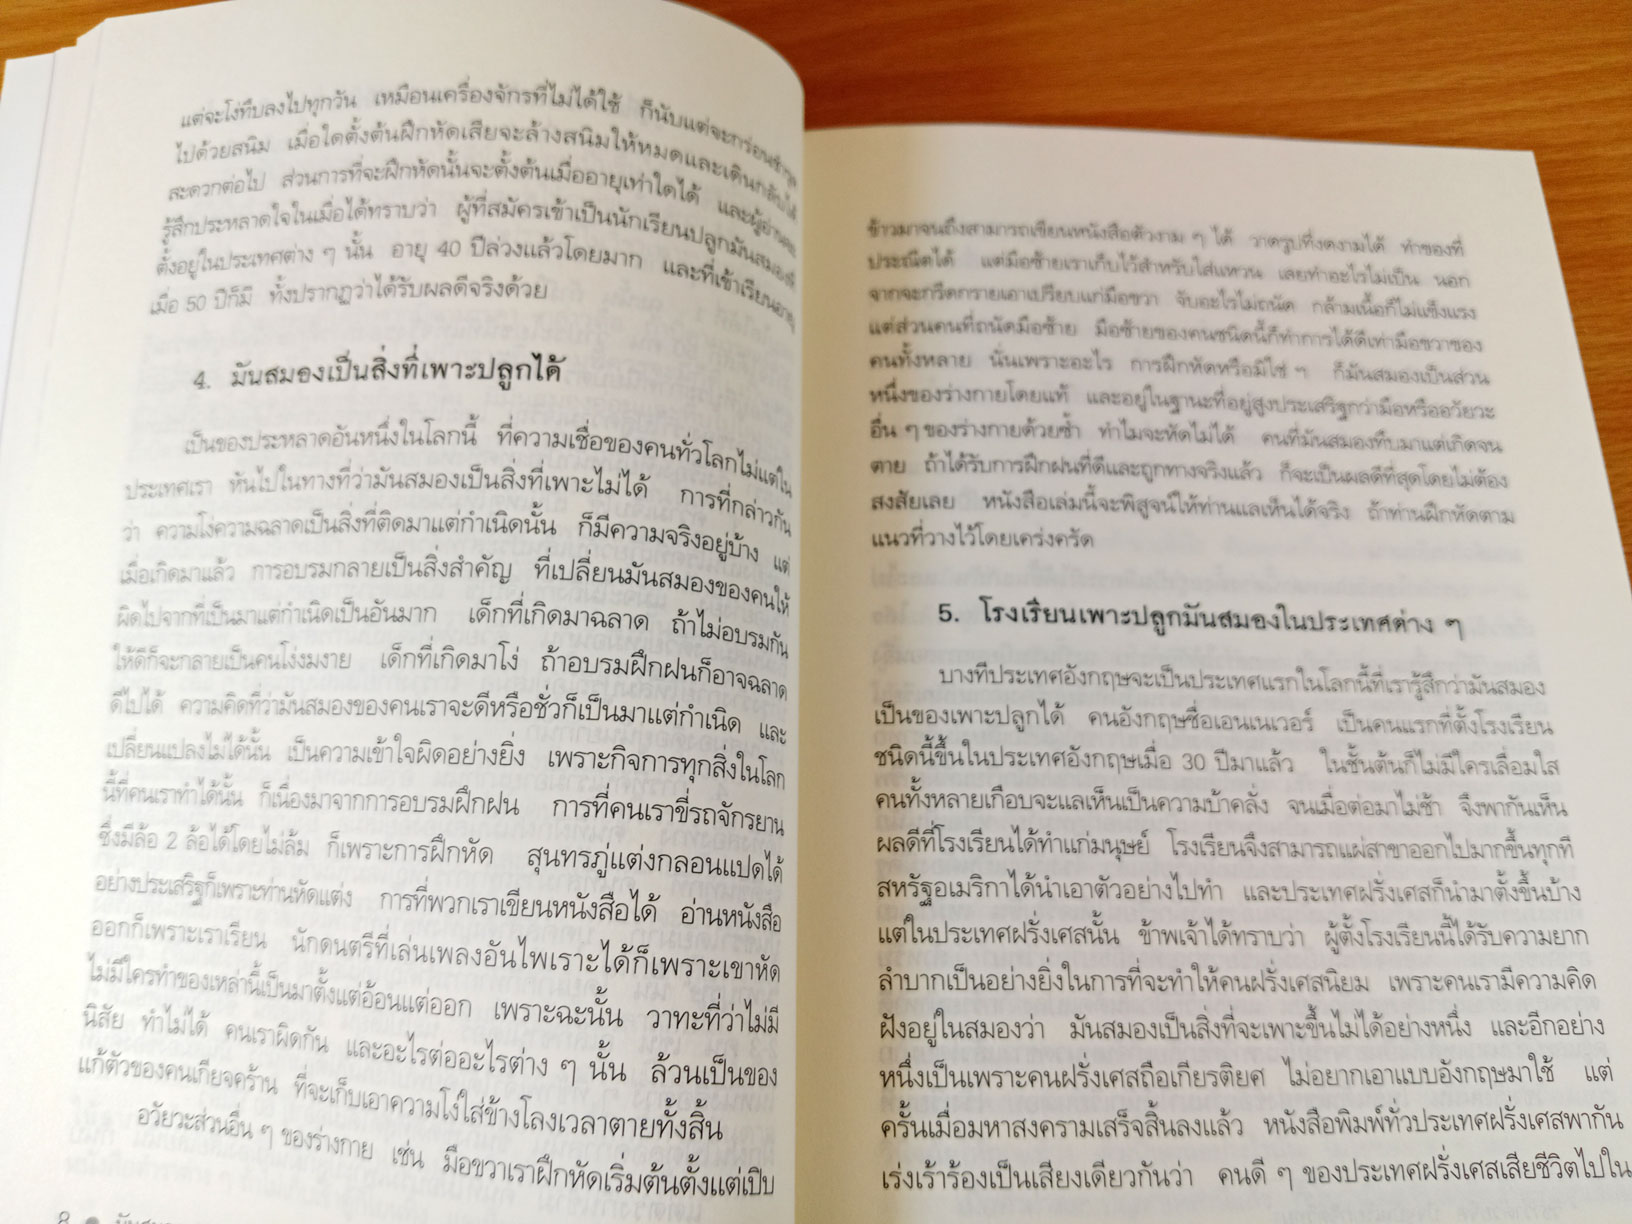 แต่จะโง่ทึบลงไปทุกวัน เหมือนเครื่องจักรที่ไม่ได้ใช้ ก็นับแต่จะกร่อนชำรุด
ไปด้วยสนิม เมื่อใดตั้งต้นฝึกหัดเสียจะล้างสนิมให้หมดและเดินกลับได้
สะดวกต่อไป ส่วนการที่จะฝึกหัดนั้นจะตั้งต้นเมื่ออายุเท่าใดได้ และผู้อ่านคง
รู้สึกประหลาดใจในเมื่อได้ทราบว่า ผู้ที่สมัครเข้าเป็นนักเรียนปลูกมันสมองที่
ตั้งอยู่ในประเทศต่าง ๆ นั้น อายุ 40 ปีล่วงแล้วโดยมาก และที่เข้าเรียนอายุ
เมื่อ 50 ปีก็มี ทั้งปรากฏว่าได้รับผลดีจริงด้วย
4. มันสมองเป็นสิ่งที่เพาะปลูกได้
เป็นของประหลาดอันหนึ่งในโลกนี้ ที่ความเชื่อของคนทั่วโลกไม่แต่ใน
ประเทศเรา หันไปในทางที่ว่ามันสมองเป็นสิ่งที่เพาะไม่ได้ การที่กล่าวกัน
ว่า ความโง่ความฉลาดเป็นสิ่งที่ติดมาแต่กำเนิดนั้น ก็มีความจริงอยู่บ้าง แต่
เมื่อเกิดมาแล้ว การอบรมกลายเป็นสิ่งสำคัญ ที่เปลี่ยนมันสมองของคนให้
ผิดไปจากที่เป็นมาแต่กำเนิดเป็นอันมาก เด็กที่เกิดมาฉลาด ถ้าไม่อบรมกัน
ให้ดีก็จะกลายเป็นคนโง่งมงาย เด็กที่เกิดมาโง่ ถ้าอบรมฝึกฝนก็อาจฉลาด
ดีไปได้ ความคิดที่ว่ามันสมองของคนเราจะดีหรือชั่วก็เป็นมาแต่กำเนิด และ
เปลี่ยนแปลงไม่ได้นั้น เป็นความเข้าใจผิดอย่างยิ่ง เพราะกิจการทุกสิ่งในโลก
นี้ที่คนเราทำได้นั้น ก็เนื่องมาจากการอบรมฝึกฝน การที่คนเราขี่รถจักรยาน
ซึ่งมีล้อ 2 ล้อได้โดยไม่ล้ม ก็เพราะการฝึกหัด สุนทรภู่แต่งกลอนแปดได้
อย่างประเสริฐก็เพราะท่านหัดแต่ง การที่พวกเราเขียนหนังสือได้ อ่านหนังสือ
ออกก็เพราะเราเรียน นักดนตรีที่เล่นเพลงอันไพเราะได้ก็เพราะเขาหัด
ไม่มีใครทำของเหล่านี้เป็นมาตั้งแต่อ้อนแต่ออก เพราะฉะนั้น วาทะที่ว่าไม่มี
นิสัย ทำไม่ได้ คนเราผิดกัน และอะไรต่ออะไรต่าง ๆ นั้น ล้วนเป็นของ
แก้ตัวของคนเกียจคร้าน ที่จะเก็บเอาความโง่ใส่ข้างโลงเวลาตายทั้งสิ้น
อวัยวะส่วนอื่น ๆ ของร่างกาย เช่น มือขวาเราฝึกหัดเริ่มต้นตั้งแต่เปิบ
8
ข้าวมาจนถึงสามารถเขียนหนังสือตัวงาม ๆ ได้ วาดรูปที่งดงามได้ ทำของที่
ประณีตได้ แต่มือซ้ายเราเก็บไว้สำหรับใส่แหวน เลยทำอะไรไม่เป็น นอก
จากจะกรีดกรายเอาเปรียบแก่มือขวา จับอะไรไม่ถนัด กล้ามเนื้อก็ไม่แข็งแรง
แต่ส่วนคนที่ถนัดมือซ้าย มือซ้ายของคนชนิดนี้ก็ทำการได้ดีเท่ามือขวาของ
คนทั้งหลาย นั่นเพราะอะไร การฝึกหัดหรือมิใช่ ๆ ก็มันสมองเป็นส่วน
หนึ่งของร่างกายโดยแท้ และอยู่ในฐานะที่อยู่สูงประเสริฐกว่ามือหรืออวัยวะ
อื่น ๆ ของร่างกายด้วยซ้ำ ทำไมจะหัดไม่ได้ คนที่มันสมองทึบมาแต่เกิดจน
ตาย ถ้าได้รับการฝึกฝนที่ดีและถูกทางจริงแล้ว ก็จะเป็นผลดีที่สุดโดยไม่ต้อง
สงสัยเลย หนังสือเล่มนี้จะพิสูจน์ให้ท่านแลเห็นได้จริง ถ้าท่านฝึกหัดตาม
แนวที่วางไว้โดยเคร่งครัด
5. โรงเรียนเพาะปลูกมันสมองในประเทศต่าง ๆ
บางทีประเทศอังกฤษจะเป็นประเทศแรกในโลกนี้ที่เรารู้สึกว่ามันสมอง
เป็นของเพาะปลูกได้ คนอังกฤษชื่อเอนเนเวอร์ เป็นคนแรกที่ตั้งโรงเรียน
ชนิดนี้ขึ้นในประเทศอังกฤษเมื่อ 30 ปีมาแล้ว ในชั้นต้นก็ไม่มีใครเลื่อมใส
คนทั้งหลายเกือบจะแลเห็นเป็นความบ้าคลั่ง จนเมื่อต่อมาไม่ช้า จึงพากันเห็น
ผลดีที่โรงเรียนได้ทำแก่มนุษย์ โรงเรียนจึงสามารถแผ่สาขาออกไปมากขึ้นทุกที
สหรัฐอเมริกาได้นำเอาตัวอย่างไปทำ และประเทศฝรั่งเศสก็นำมาตั้งขึ้นบ้าง
แต่ในประเทศฝรั่งเศสนั้น ข้าพเจ้าได้ทราบว่า ผู้ตั้งโรงเรียนนี้ได้รับความยาก
ลำบากเป็นอย่างยิ่งในการที่จะทำให้คนฝรั่งเศสนิยม เพราะคนเรามีความคิด
ฝังอยู่ในสมองว่า มันสมองเป็นสิ่งที่จะเพาะขึ้นไม่ได้อย่างหนึ่ง และอีกอย่าง
หนึ่งเป็นเพราะคนฝรั่งเศสถือเกียรติยศ ไม่อยากเอาแบบอังกฤษมาใช้ แต่
ครั้นเมื่อมหาสงครามเสร็จสิ้นลงแล้ว หนังสือพิมพ์ทั่วประเทศฝรั่งเศสพากัน
เร่งเร้าร้องเป็นเสียงเดียวกันว่า คนดี ๆ ของประเทศฝรั่งเศสเสียชีวิตไปใน